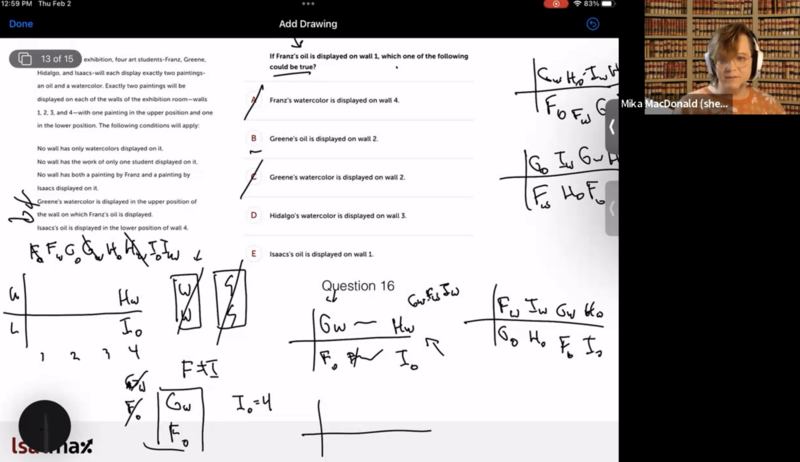 12:59 PM Thu Feb 2
83%
Done
Add Drawing
13 of 15
exhibition, four art students-Franz, Greene,
Hidalgo, and Isaacs-will each display exactly two paintings-
an oil and a watercolor. Exactly two paintings will be
displayed on each of the walls of the exhibition room—walls
1, 2, 3, and 4—with one painting in the upper position and one
in the lower position. The following conditions will apply:
No wall has only watercolors displayed on it.
No wall has the work of only one student displayed on it.
No wall has both a painting by Franz and a painting by
Isaacs displayed on it.
Greene's watercolor is displayed in the upper position of
the wall on which Franz's oil is displayed.
Isaacs's oil is displayed in the lower position of wall 4.
If Franz's oil is displayed on wall 1, which one of the following
could be true?
A Franz's watercolor is displayed on wall 4.
B Greene's oil is displayed on wall 2.
C Greene's watercolor is displayed on wall 2.
D Hidalgo's watercolor is displayed on wall 3.
E Isaacs's oil is displayed on wall 1.
Question 16
Mika MacDonald (she...
Fo Fw Go Gw Ho Hw Io Iw
Hw
L Io
1 2 3 4
W
W
G
G
F≠I
Gw
Fo
Gw
Fo
Io=4
Gw Hw
Fo Io
Gw Fw Iw
Gw Ho Iw
Fo Fw G
Go Iw Gw H
Fw Ho Fo
Fw Iw Gw Ho
Go Ho Fo Io
lsatmax